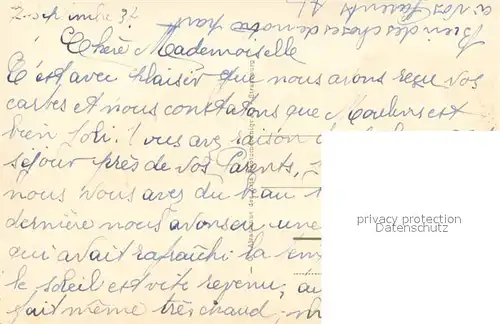 2 Septembre 37
Bien des choses de notre part
à vos Parents
Chère Mademoiselle
C'est avec plaisir que nous avons reçu vos
cartes et nous constatons que Moulins est
bien joli. vous avez raison
séjour près de vos Parents,
nous vous avez du beau
dernière nous avons eu une
qui avait rafraîchi la
le soleil est vite revenu, au
fait même très chaud,
privacy protection
Datenschutz